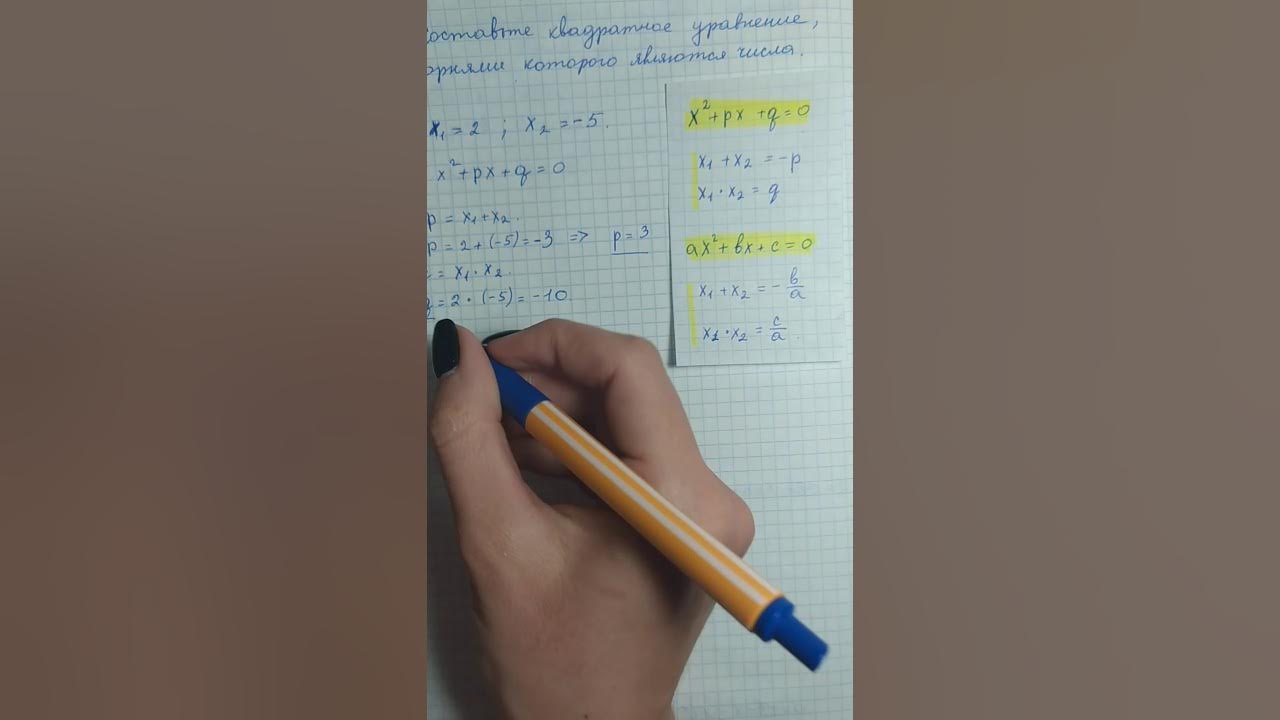 составьте квадратное уравнение,
орнями которого являются числа.
x₁ = 2 ; x₂ = -5.
x² + px + q = 0
p = x₁ + x₂.
p = 2 + (-5) = -3 => p = 3
= x₁ · x₂.
q = 2 · (-5) = -10
x² + px + q = 0
x₁ + x₂ = -p
x₁ · x₂ = q
ax² + bx + c = 0
x₁ + x₂ = - b/a
x₁ · x₂ = c/a.